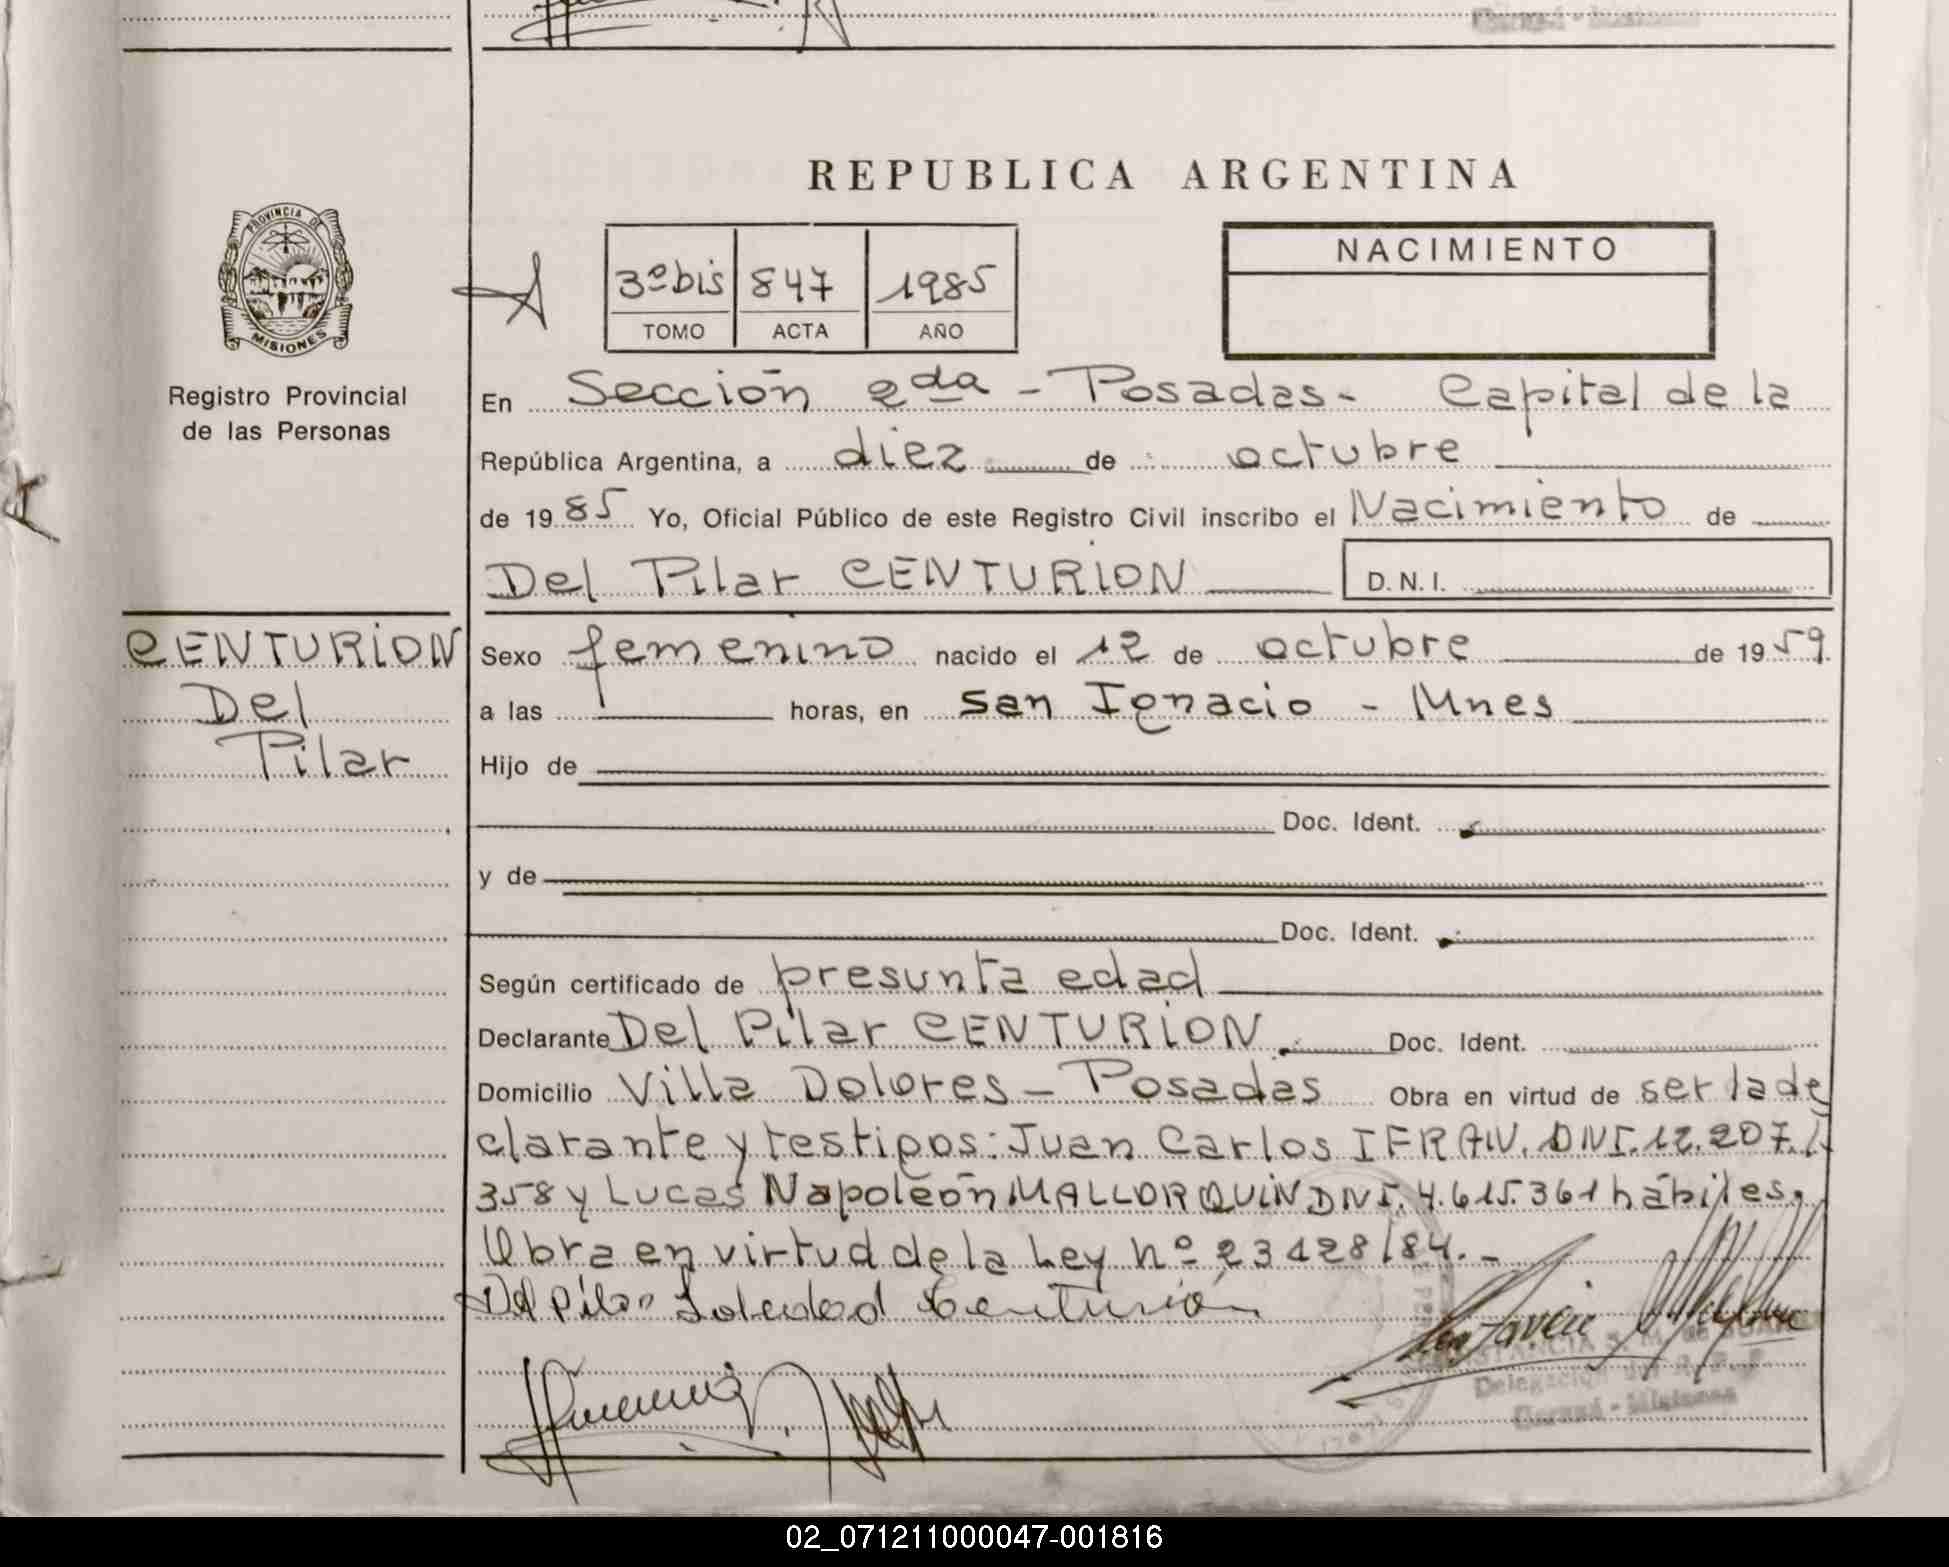 REPUBLICA ARGENTINA
PROVINCIA DE
MISIONES
Registro Provincial
de las Personas
3º bis 847 1985
TOMO ACTA AÑO
NACIMIENTO
En Sección 2da - Posadas - Capital de la
República Argentina, a diez de octubre
de 1985 Yo, Oficial Público de este Registro Civil inscribo el Nacimiento de
Del Pilar CENTURION D.N.I.
CENTURION
Del
Pilar
Sexo femenino nacido el 12 de octubre de 1959.
a las horas, en San Ignacio - Mnes
Hijo de
Doc. Ident.
y de
Doc. Ident.
Según certificado de presunta edad
Declarante Del Pilar CENTURION. Doc. Ident.
Domicilio Villa Dolores - Posadas Obra en virtud de ser la de
clarante y testigos: Juan Carlos IFRAN. DNI. 12.207.
358 y Lucas Napoleón MALLORQUIN DNI. 4.615.361 hábiles.
Obra en virtud de la Ley nº 23428/84. -
Del Pilar Soledad Centurión
Delegación del R. P. P.
Misiones
02_071211000047-001816